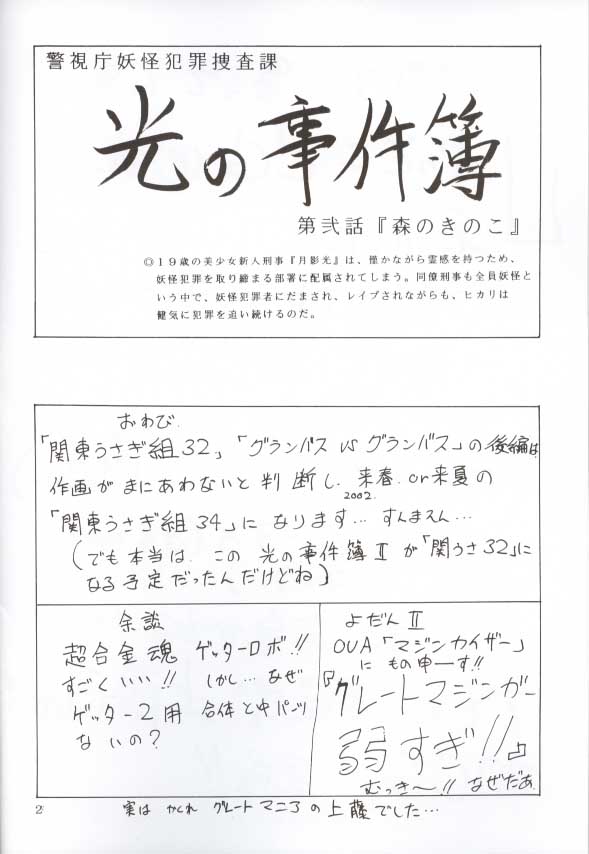 警視庁妖怪犯罪捜査課
光の事件簿
第弐話『森のきのこ』
◎19歳の美少女新人刑事『月影光』は、僅かながら霊感を持つため、
妖怪犯罪を取り締まる部署に配属されてしまう。同僚刑事も全員妖怪と
いう中で、妖怪犯罪者にだまされ、レイプされながらも、ヒカリは
健気に犯罪を追い続けるのだ。
おわび
「関東うさぎ組32」「グランバス VS グランバス」の後編は
作画がまにあわないと判断し、来春 or 来夏の
2002.
「関東うさぎ組34」になります… すんまえん…
(でも本当は、この光の事件簿Ⅱが「関うさ32」に
なる予定だったんだけどね)
余談
超合金魂 ゲッターロボ!!
すごくいい!! しかし… なぜ
ゲッター2用 合体と中パーツ
ないの?
よだんⅡ
OVA「マジンカイザー」
にもの申ーす!!
『グレートマジンガー
弱すぎ!!』
むっき〜!! なぜだぁ
2
実は かくれ グレートマニアの上藤でした…